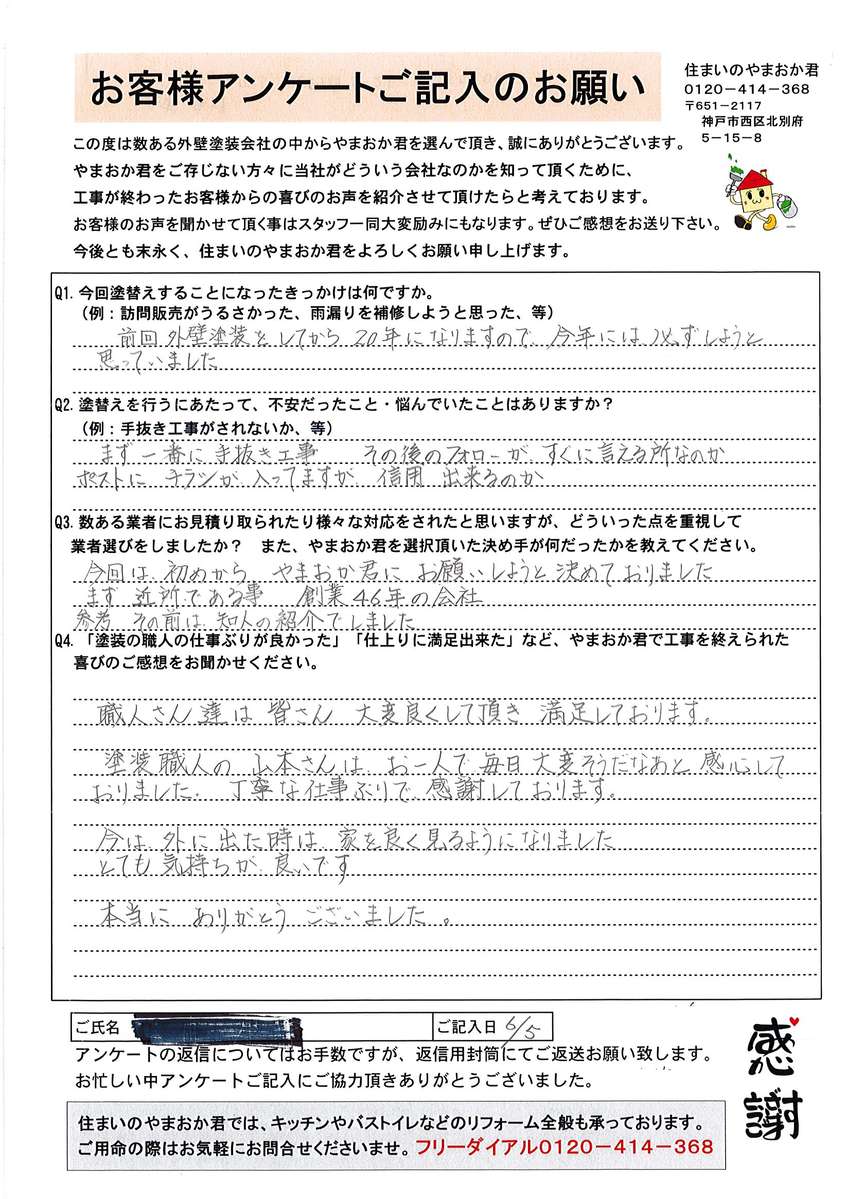 お客様アンケートご記入のお願い
住まいのやまおか君
0120－414－368
〒651－2117
神戸市西区北別府
5－15－8
この度は数ある外壁塗装会社の中からやまおか君を選んで頂き、誠にありがとうございます。
やまおか君をご存じない方々に当社がどういう会社なのかを知って頂くために、
工事が終わったお客様からの喜びのお声を紹介させて頂けたらと考えております。
お客様のお声を聞かせて頂く事はスタッフ一同大変励みにもなります。ぜひご感想をお送り下さい。
今後とも末永く、住まいのやまおか君をよろしくお願い申し上げます。
Q1. 今回塗替えすることになったきっかけは何ですか。
（例：訪問販売がうるさかった、雨漏りを補修しようと思った、等）
前回外壁塗装をしてから20年になりますので、今年には必ずしようと
思っていました
Q2. 塗替えを行うにあたって、不安だったこと・悩んでいたことはありますか？
（例：手抜き工事がされないか、等）
まず一番に手抜き工事 その後のフォローがすぐに言える所なのか
ポストにチラシが入ってますが、信用出来るのか
Q3. 数ある業者にお見積り取られたり様々な対応をされたと思いますが、どういった点を重視して
業者選びをしましたか？ また、やまおか君を選択頂いた決め手が何だったかを教えてください。
今回は、初めから、やまおか君にお願いしようと決めておりました
まず近所である事 創業46年の会社
参考 その前は知人の紹介でしました
Q4. 「塗装の職人の仕事ぶりが良かった」「仕上りに満足出来た」など、やまおか君で工事を終えられた
喜びのご感想をお聞かせください。
職人さん達は皆さん 大変良くして頂き 満足しております。
塗装職人の山本さんは、お一人で毎日大変そうだなあと感心して
おりました。丁寧な仕事ぶりで、感謝しております。
今は、外に出た時は、家を良く見るようになりました
とても気持ちが、良いです
本当に ありがとう ございました。
ご氏名
ご記入日 6/5
アンケートの返信についてはお手数ですが、返信用封筒にてご返送お願い致します。
お忙しい中アンケートご記入にご協力頂きありがとうございました。
感謝
住まいのやまおか君では、キッチンやバストイレなどのリフォーム全般も承っております。
ご用命の際はお気軽にお問合せくださいませ。フリーダイアル0120－414－368